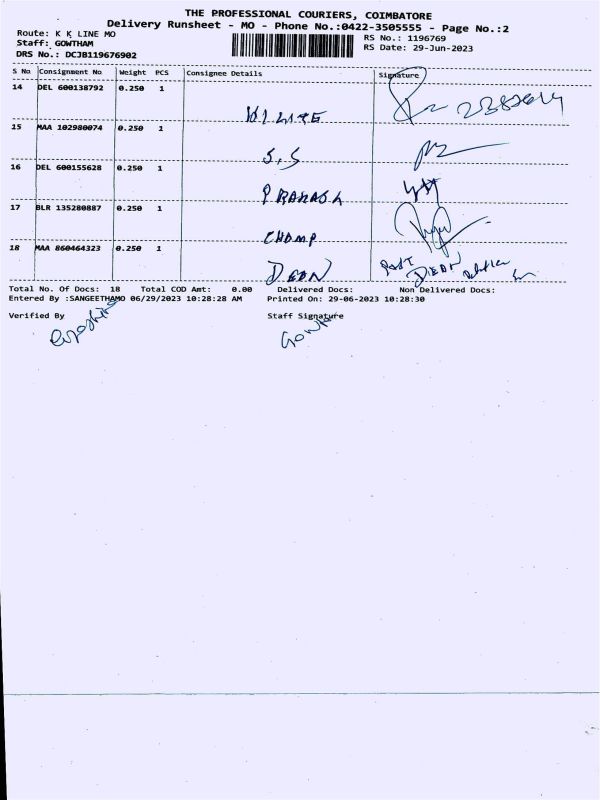 THE PROFESSIONAL COURIERS, COIMBATORE
Delivery Runsheet - MO - Phone No.:0422-3505555 - Page No.:2
Route: K K LINE MO
RS No.: 1196769
Staff: GOWTHAM
RS Date: 29-Jun-2023
DRS No.: DCJB119676902
S No Consignment No Weight PCS Consignee Details Signature
14 DEL 600138792 0.250 1
15 MAA 102980074 0.250 1
S.S
16 DEL 600155628 0.250 1
PRAKASh
17 BLR 135280887 0.250 1
CHAMP
18 MAA 860464323 0.250 1
DEAN
DEAN
Total No. Of Docs: 18 Total COD Amt: 0.00 Delivered Docs: Non Delivered Docs:
Entered By :SANGEETHAMO 06/29/2023 10:28:28 AM Printed On: 29-06-2023 10:28:30
Verified By Staff Signature